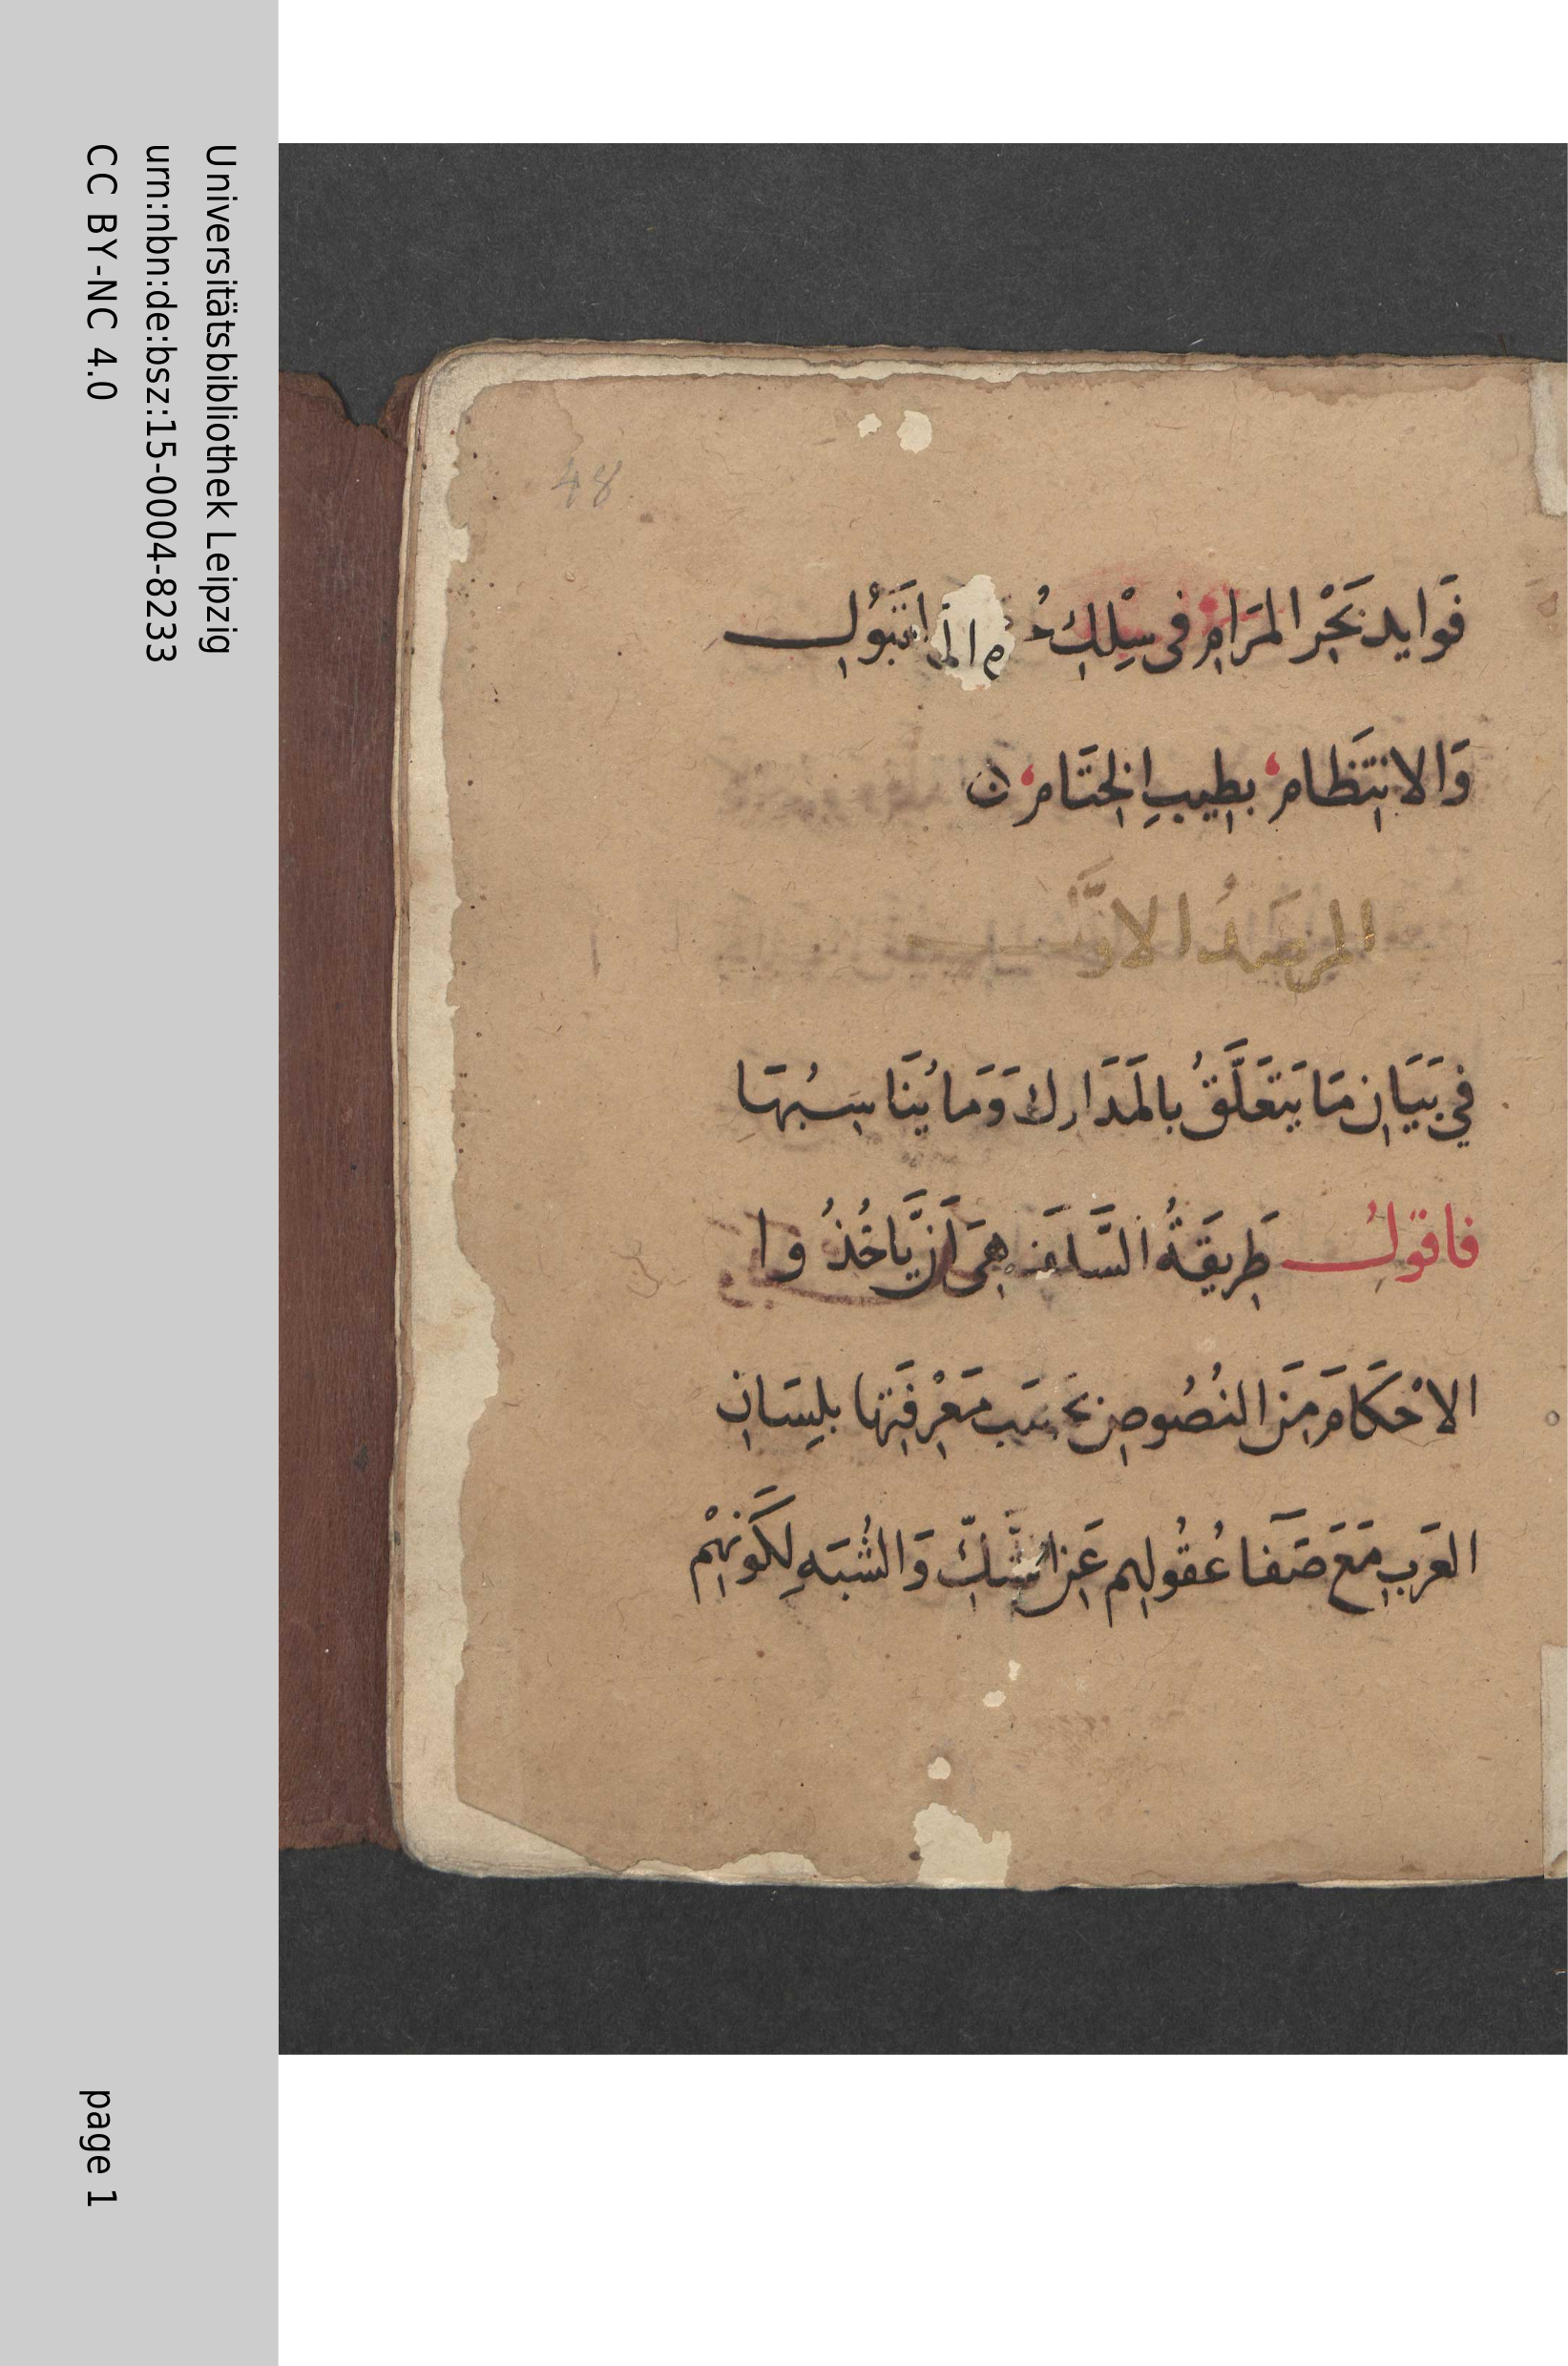 Universitätsbibliothek Leipzig
urn:nbn:de:bsz:15-0004-8233
CC BY-NC 4.0
48
فَوَايد بَحْر المَرَامِ فى سِلْكِ
وَالانتِظَام بطِيبِ الخِتَام
المرصَدُ الاوَّل
فِي بَيَانِ مَا يَتَعَلَّقُ بالمَدَارك وَمَا يُنَاسِبُهَا
فاقولُ طَرِيقَةُ السَّلَف هِىَ اَن يَّاخُذُوا
الاحْكَامَ مِنَ النُصُوصِ بحَسَب مَعْرِفَتِها بلِسَانِ
العَرَبِ مَعَ صَفَا عُقُولِهم عَنِ الشَّكِّ وَالشُبَهِ لِكَونِهِمْ
page 1